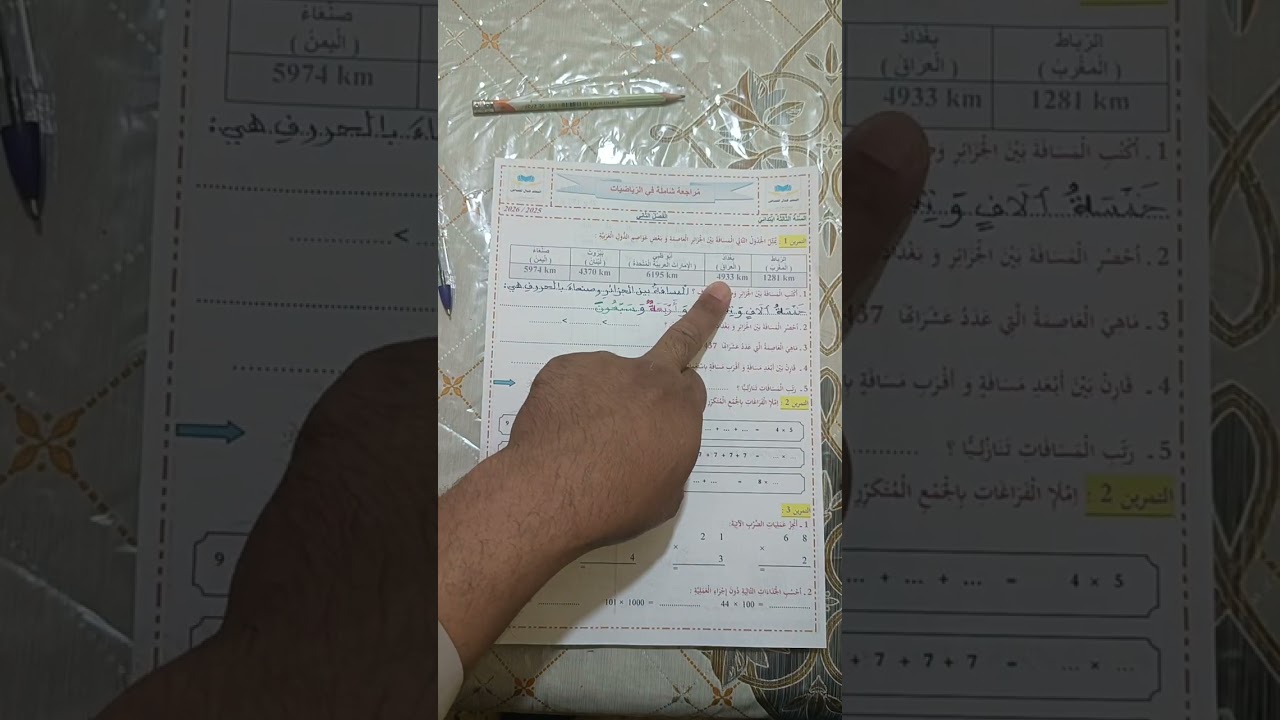 مراجعة شاملة في الرياضيات
2026 / 2025
السنة الثالثة ابتدائي
الفصل الثاني
التمرين 1 يمثل الجدول التالي المسافة بين الجزائر العاصمة و بعض عواصم الدول العربية :
الرباط (المغرب) بغداد (العراق) أبو ظبي (الإمارات العربية المتحدة) بيروت (لبنان) صنعاء (اليمن)
1281 km 4933 km 6195 km 4370 km 5974 km
1 ـ أكتب المسافة بين الجزائر ؟ المسافة بين الجزائر وصنعاء بالحروف هي:
خَمْسَةُ آلافٍ وَ وَ أَرْبَعَةٌ وَ سَبْعُونَ
2 ـ أحصر المسافة بين الجزائر و بغداد ؟ .......... < .......... < ..........
3 ـ ماهي العاصمة التي عدد عشراتها 437
4 ـ قارن بين أبعد مسافة و أقرب مسافة
5 ـ رتب المسافات تنازليا ؟ ..........
التمرين 2 : إملأ الفراغات بالجمع المتكرر
... + ... + ... = 4 × 5
9
7 + 7 + 7 + 7 = ... × ...
... + ... = 8 × ...
التمرين 3
1 ـ أنجز عمليات الضرب الآتية:
6 8 2 1
× ×
2 3 4
= = =
2 ـ أحسب الجداءات التالية دون إجراء العملية :
44 × 100 = .......... 101 × 1000 = ..........